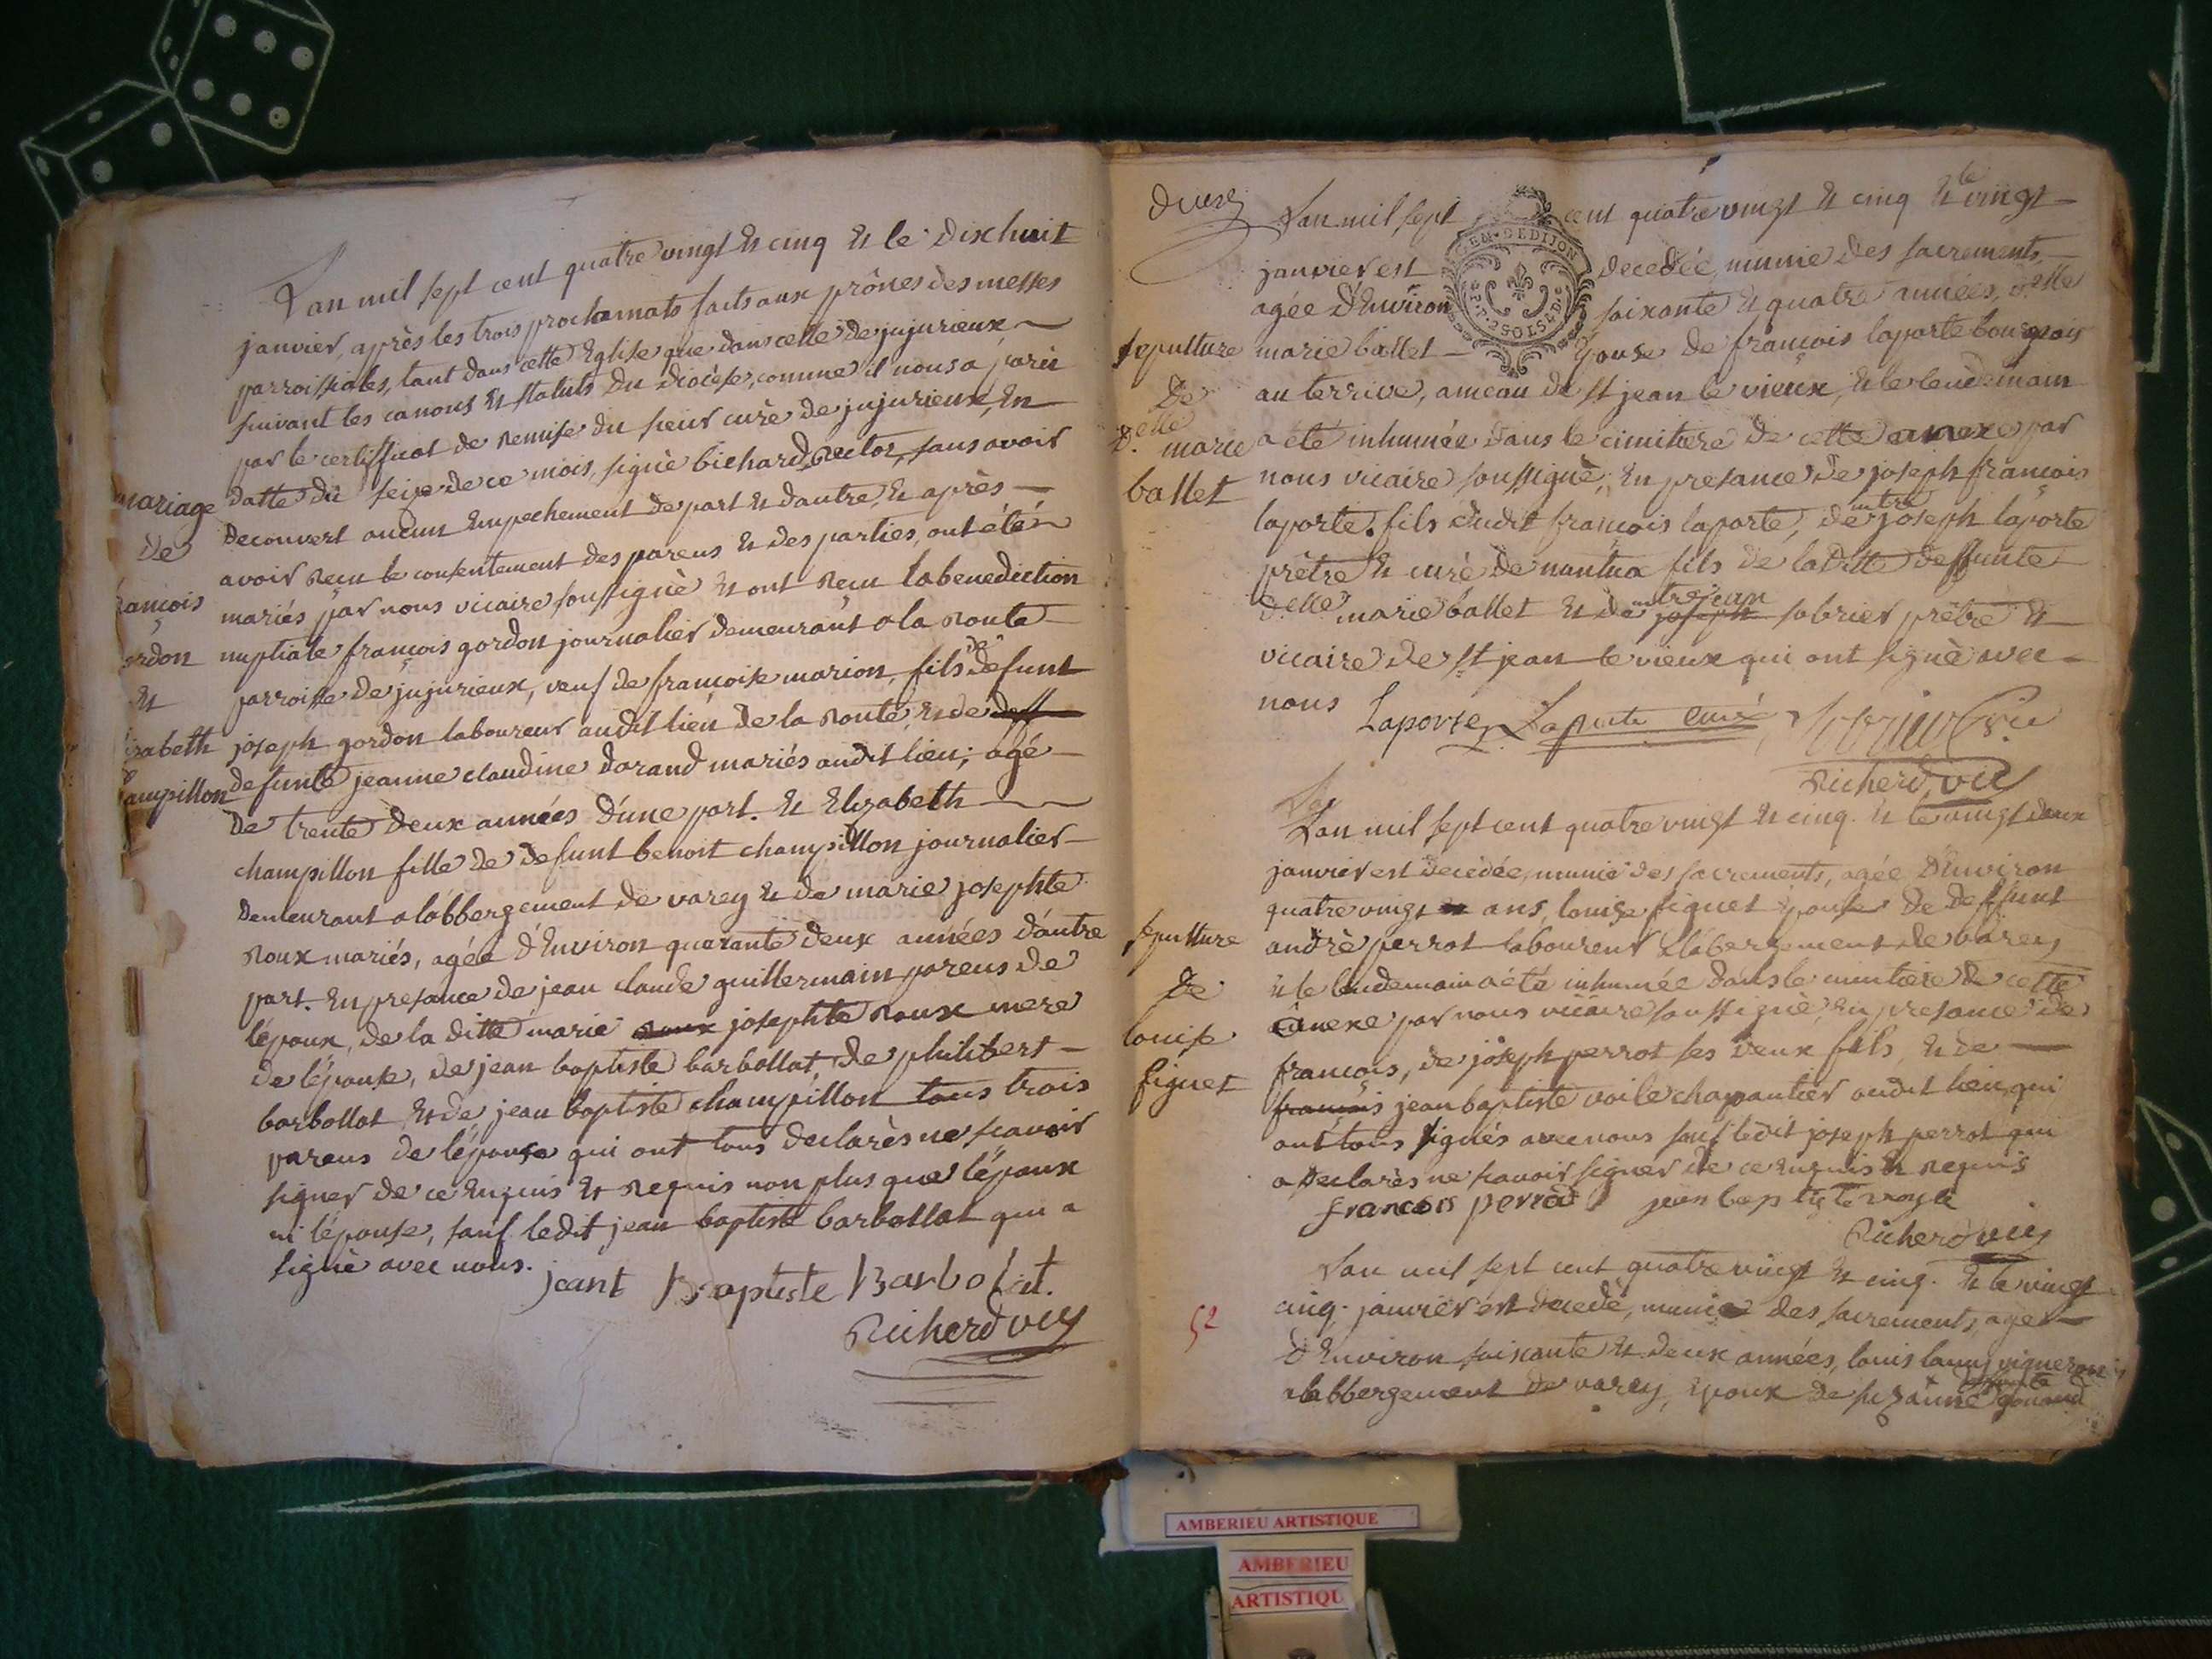 Lan mil sept cent quatre vingt et cinq et le dix huit
janvier, après les trois proclamats faits aux prônes des messes
parroissiales, tant dans cette Eglise que dans celle de jujurieux
suivant les canons et statuts du diocèse, comme il nous a paru
par le certifficat de remise du sieur curè de jujurieux, en
datte du seize de ce mois, signè bichard Rector, sans avoir
decouvert aucun empechement de part et dautre, et après
avoir recu le consentement des parens et des parties, ont été
mariés par nous vicaire soussignè et ont recu la benediction
nuptiale francois gordon journalier demeurant a la route
parroisse de jujurieux, veuf de francoise marion, fils de defunt
joseph gordon laboureur audit lieu de la route, et de deff
defunte jeanne claudine dorand mariés audit lieu; agé
de trente deux années d'une part. et Elizabeth
champillon fille de defunt benoit champillon journalier
demeurant a lábbergement de varey et de marie josephte
roux mariés, agée d'Environ quarante deux années dáutre
part. En presance de jean claude guillermain parens de
lépoux, de la ditte marie roux josephte roux mere
de lépouse, de jean baptiste barbollat, de philibert
barbollat et de jean baptiste champillon tous trois
parens de lépouse qui ont tous declarès ne scavoir
signer de ce enquis et requis non plus que lépoux
ni lépouse, sauf ledit jean baptiste barbollat qui a
signè avec nous.
jeant Baptiste Barbolat.
Richerd vic
mariage
de
francois
gordon
et
Elizabeth
champillon
Lan mil sept cent quatre vingt et cinq et le vingt
janvier est decedée, munie des sacrements,
agée d'Environ soixante et quatre années, d.elle
marie ballet épouse de francois laporte bourgeois
au terrive, ameau de st jean le vieux, et le lendemain
a été inhumée dans le cimitiere de cette anexe par
nous vicaire soussignè, en presance de joseph francois
laporte fils dudit francois laporte, de mtre joseph laporte
prêtre et curé de nantua fils de la ditte deffunte
d.elle marie ballet et de joseph mtre jean sabrier prêtre et
vicaire de st jean le vieux qui ont signè avec
nous
Laporte Laporte curé
Richerd vic
sepulture
de
d.elle marie
ballet
GEN. DE DIJON
Lan
Lan mil sept cent quatre vingt et cinq. et le vingt deux
janvier est decedée, munie des sacrements, agée d'Environ
quatre vingt ans, louise figuet épouse de deffunt
andrè perrot laboureur a lábergement de varey
et le lendemain a été inhumée dans le cimitiere de cette
anexe par nous vicaire soussignè, en presance de
francois, de joseph perrot ses deux fils, et de
francois jean baptiste voile chapantier audit lieu, qui
ont tous signés avec nous sauf ledit joseph perrot qui
a declarès ne scavoir signer de ce enquis et requis
francois perrot jean baptiste voyle
Richerd vic
sepulture
de
louise
figuet
Lan mil sept cent quatre vingt et cinq. et le vingt
cinq janvier est decedè, munie des sacrements, agé
d'Environ soixante et deux années, louis vigneron
a labbergement de varey, époux de suzanne
52
AMBERIEU ARTISTIQUE
AMBERIEU
ARTISTIQU